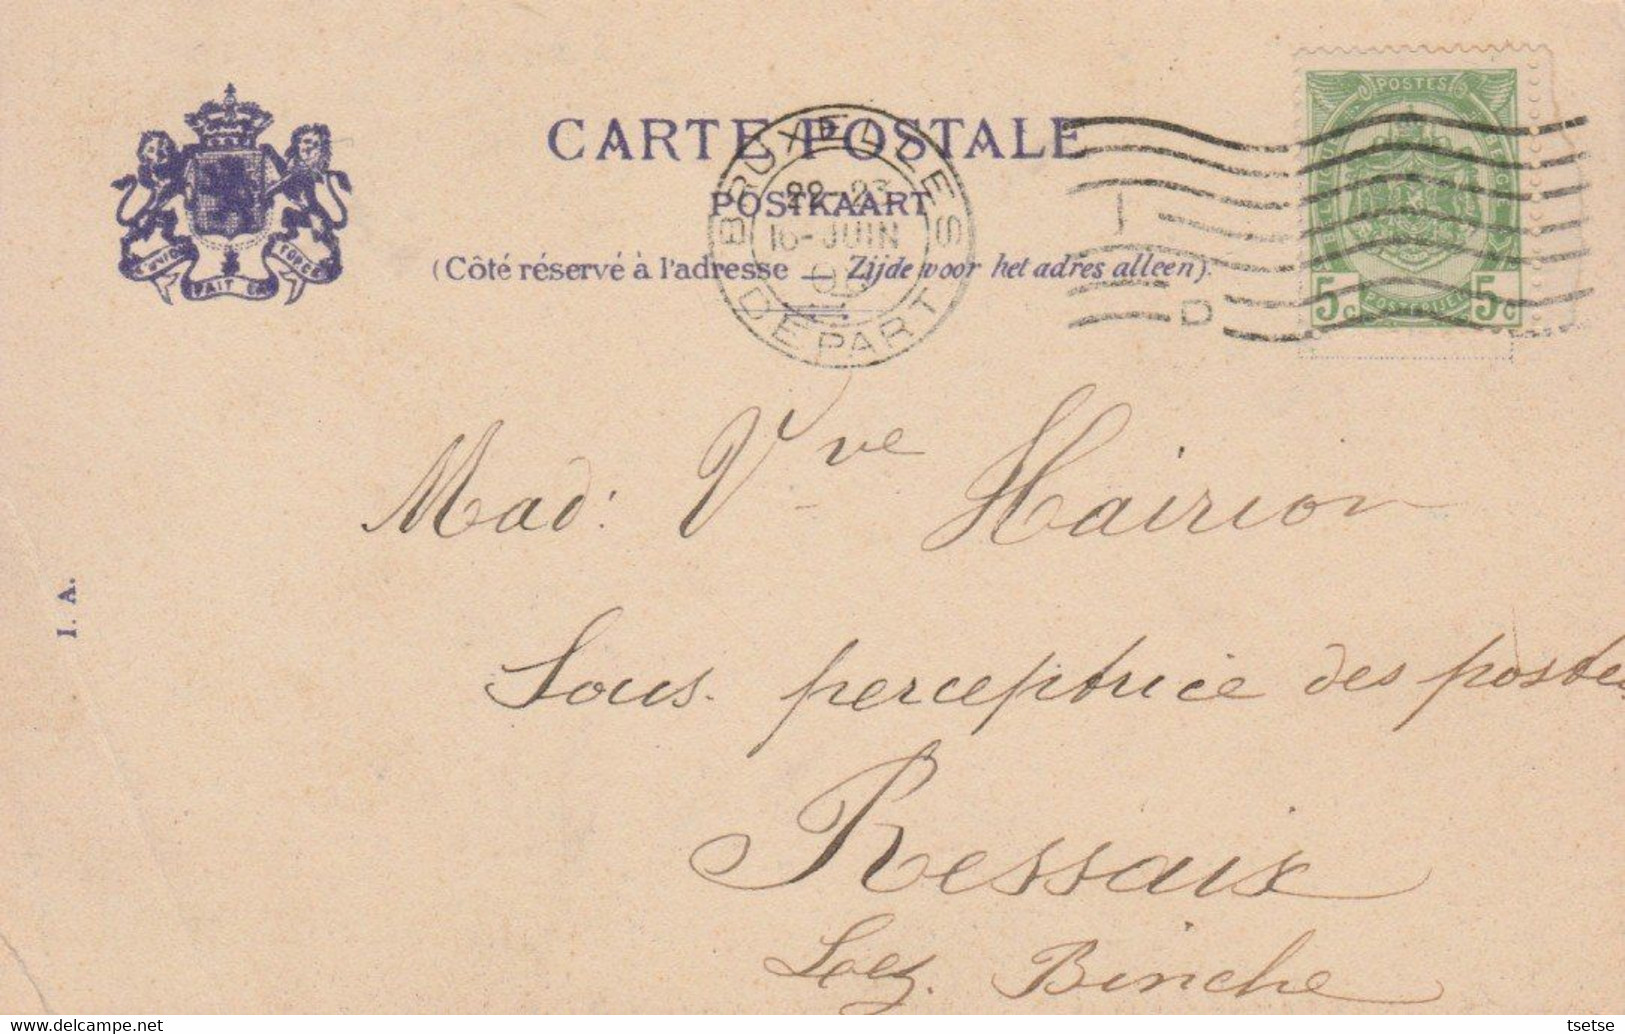 CARTE POSTALE
POSTKAART
(Côté réservé à l'adresse — Zijde voor het adres alleen).
L'UNION FAIT LA FORCE
BRUXELLES
22-23
16-JUIN
DEPART
D
POSTES
5c POSTERIJEN 5c
Mad: Vve Hairion
Sous-perceptrice des postes
Ressaix
Lez. Binche
I. A.
tsetse